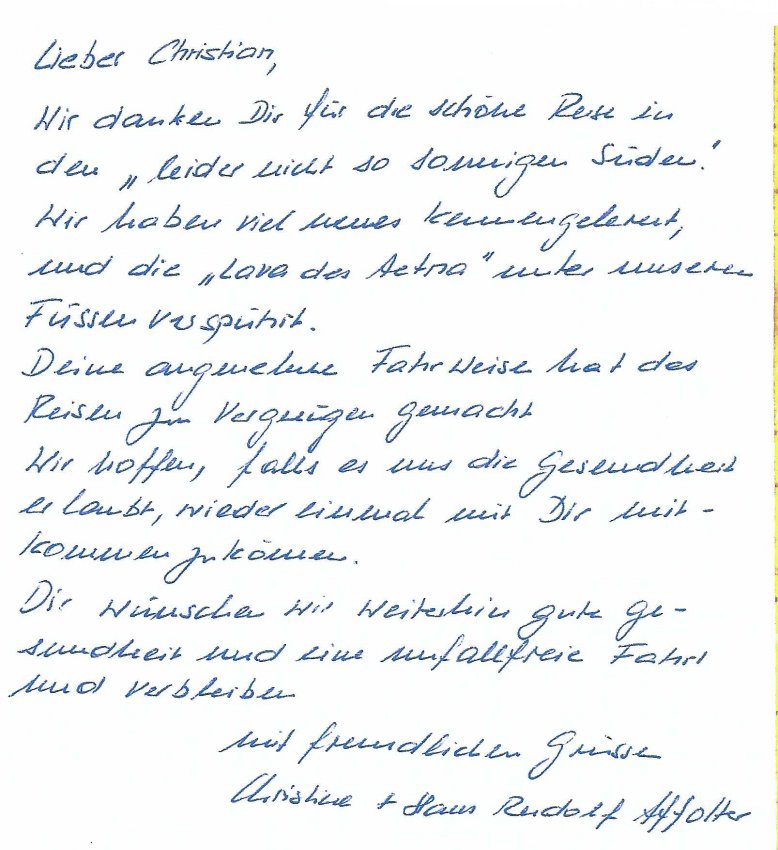 Lieber Christian,
Wir danken Dir für die schöne Reise in
den „leider nicht so sonnigen Süden."
Wir haben viel neues kennengelernt,
und die „Lava des Aetna" unter unseren
Füssen verspührt.
Deine angenehme Fahrweise hat das
Reisen zum Vergnügen gemacht
Wir hoffen, falls es uns die Gesundheit
erlaubt, wieder einmal mit Dir mit-
kommen zu können.
Dir wünschen wir weiterhin gute Ge-
sundheit und eine unfallfreie Fahrt
und verbleiben
mit freundlichen Grüssen
Christine + Hans Rudolf Affolter